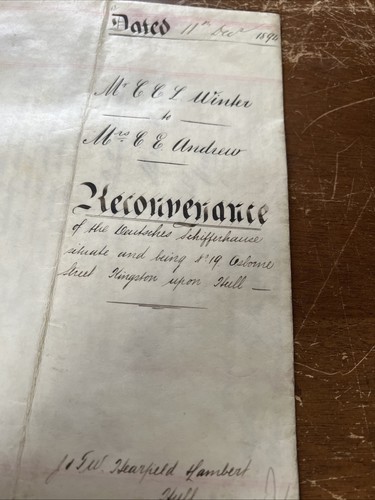 Dated 11th Decr 189
Mr C C L Winter
to
Mrs C E Andrew
Reconveyance
of the Deutsches Schifferhause
situate and being No 19 Osborne
Street Kingston upon Hull —
Hearfield Lambert
Hull